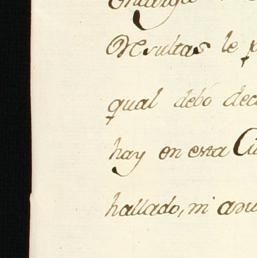 Resultas le p
qual debo dec
hay en esta Ciu
hallado, ni aau